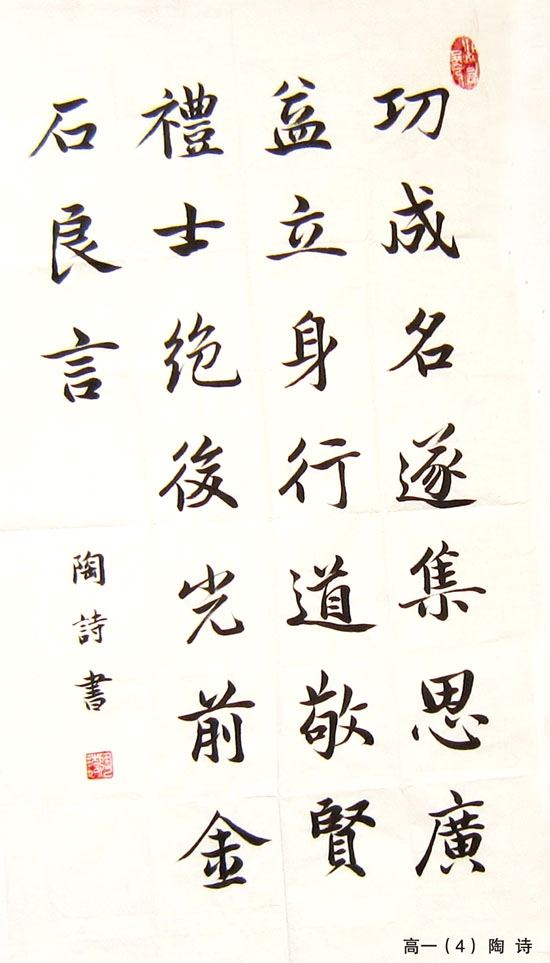 功成名遂集思廣
益立身行道敬賢
禮士絶後光前金
石良言
陶詩書
高一(4) 陶 诗